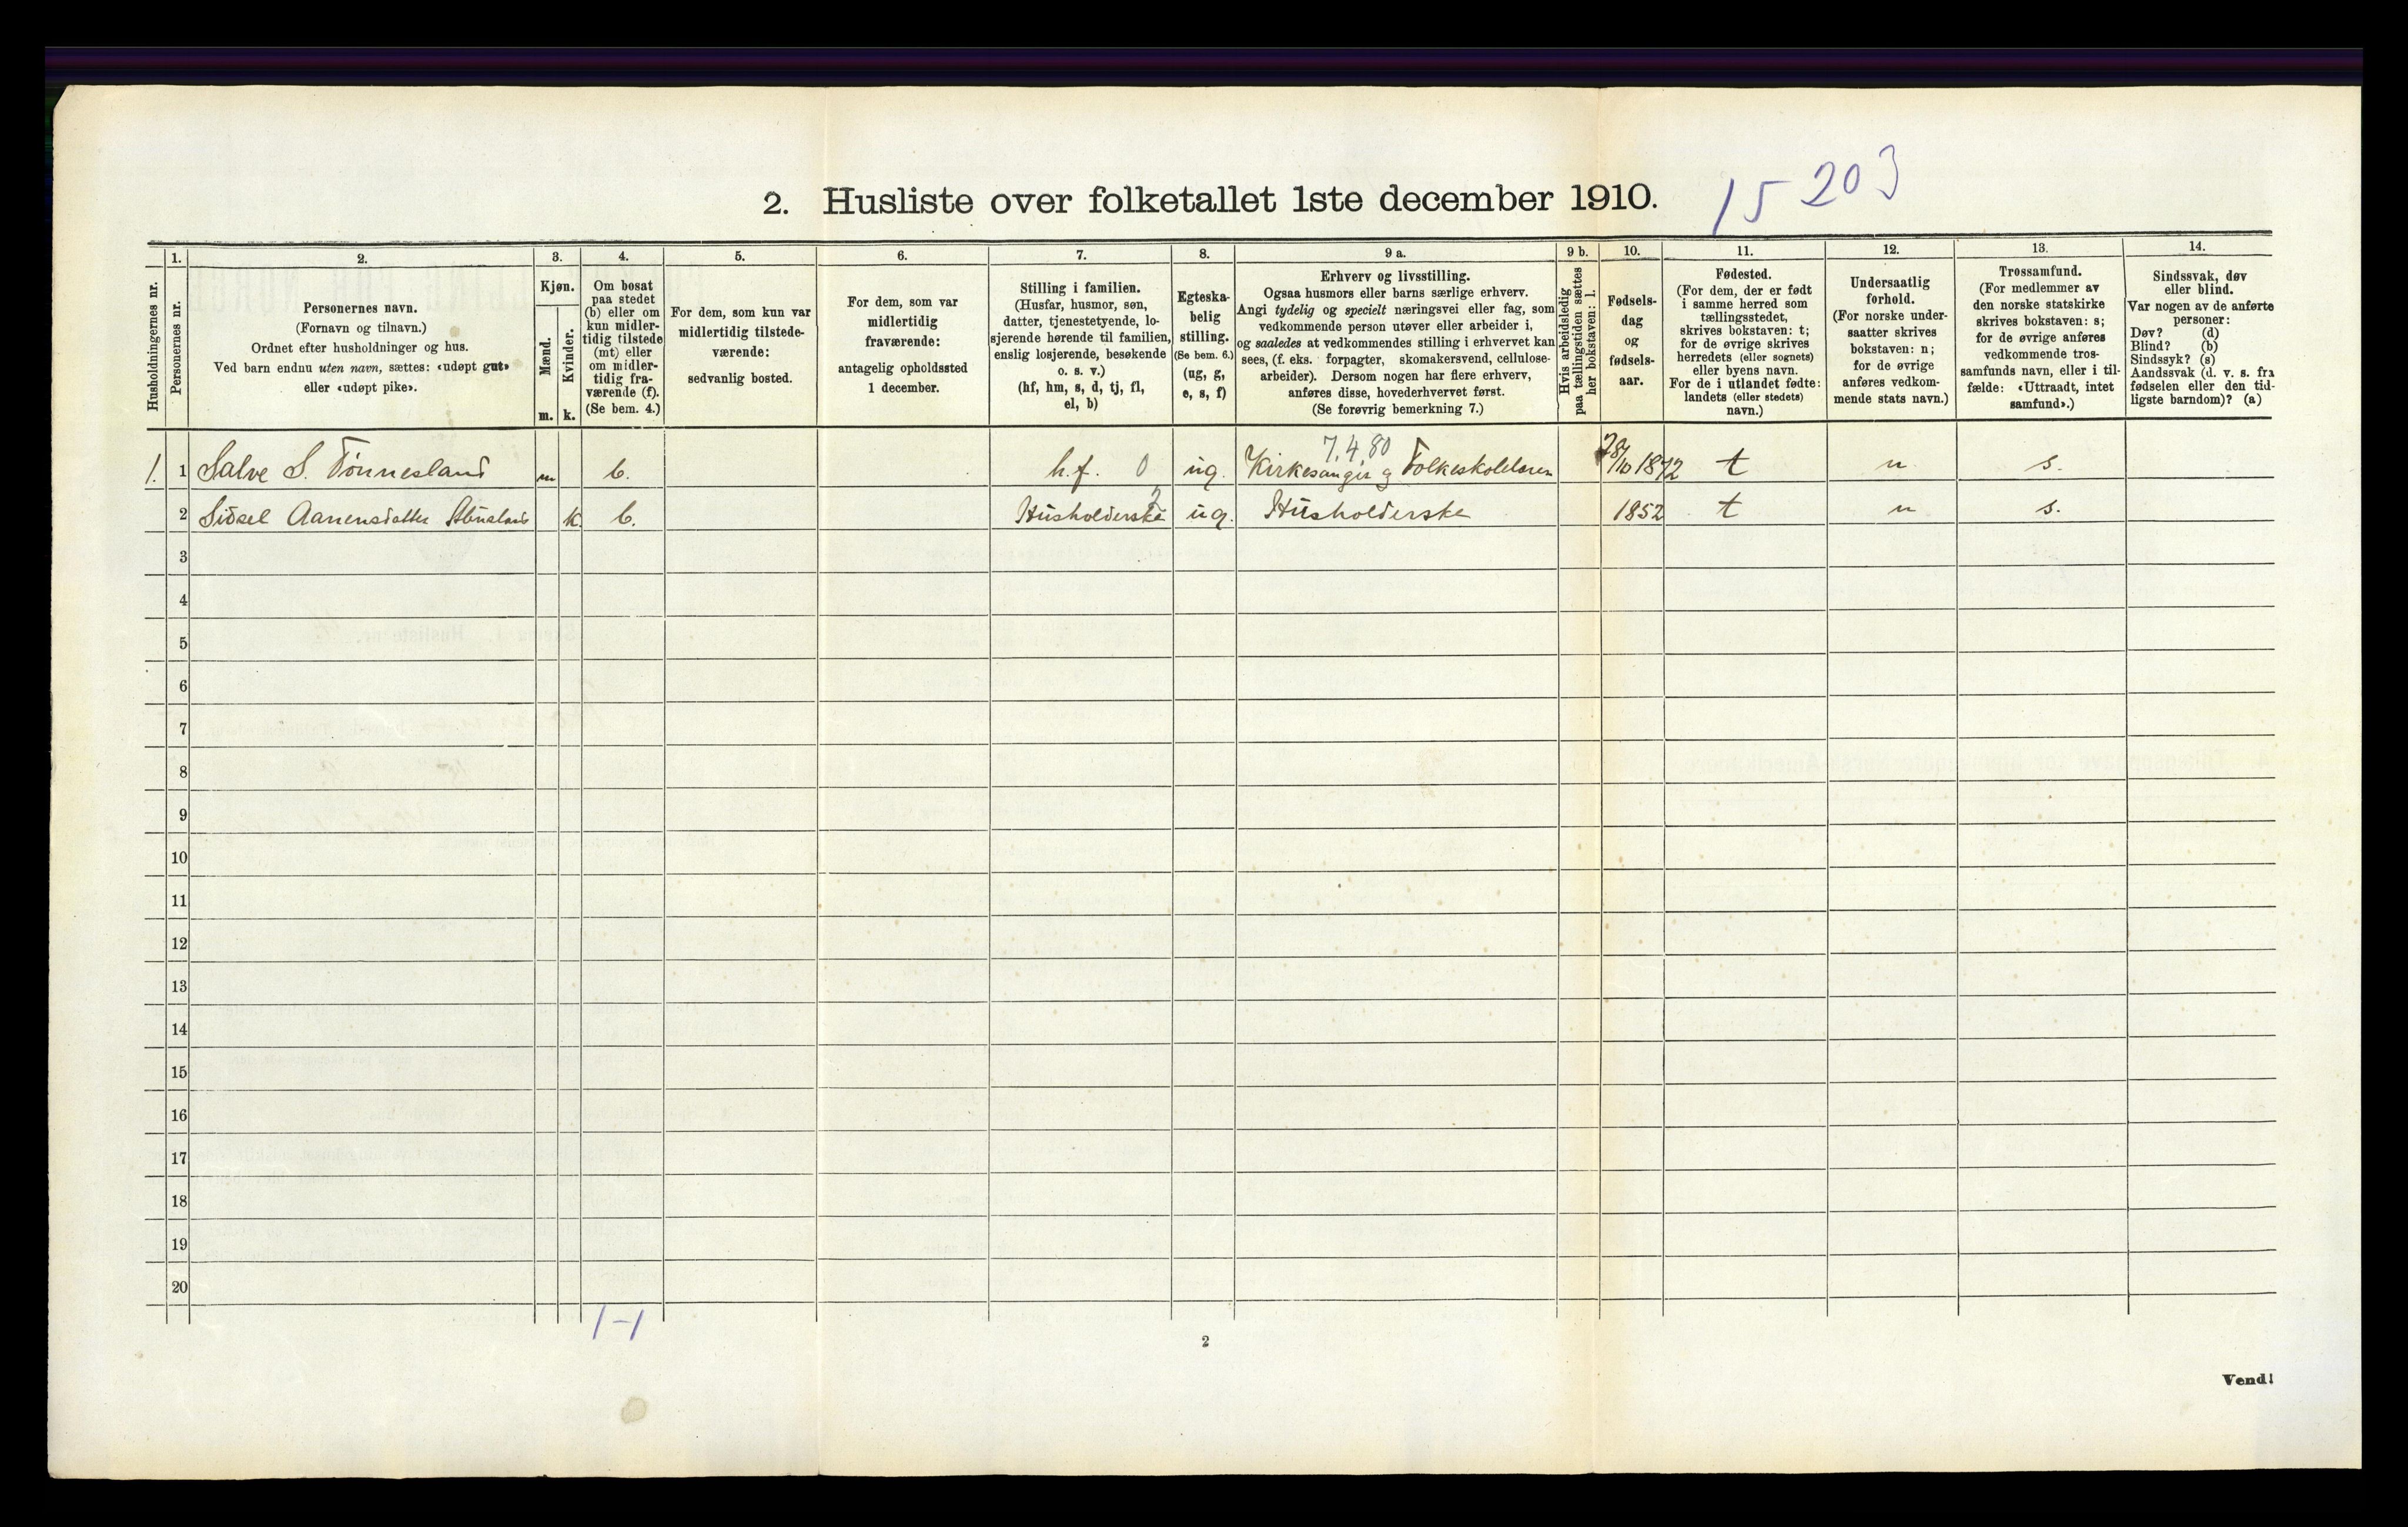 2. Husliste over folketallet 1ste december 1910. 15 203
Husholdningernes nr.
1. Personernes nr.
2. Personernes navn.
(Fornavn og tilnavn.)
Ordnet efter husholdninger og hus.
Ved barn endnu uten navn, sættes: «udøpt gut»
eller «udøpt pike».
3. Kjøn.
Mænd. Kvinder.
m. k.
4. Om bosat
paa stedet
(b) eller om
kun midler-
tidig tilstede
(mt) eller
om midler-
tidig fra-
værende (f).
(Se bem. 4.)
5. For dem, som kun var
midlertidig tilstede-
værende:
sedvanlig bosted.
6. For dem, som var
midlertidig
fraværende:
antagelig opholdssted
1 december.
7. Stilling i familien.
(Husfar, husmor, søn,
datter, tjenestetyende, lo-
sjerende hørende til familien,
enslig losjerende, besøkende
o. s. v.)
(hf, hm, s, d, tj, fl,
el, b)
8. Egteska-
belig
stilling.
(Se bem. 6.)
(ug, g,
e, s, f)
9 a. Erhverv og livsstilling.
Ogsaa husmors eller barns særlige erhverv.
Angi tydelig og specielt næringsvei eller fag, som
vedkommende person utøver eller arbeider i,
og saaledes at vedkommendes stilling i erhvervet kan
sees, (f. eks. forpagter, skomakersvend, cellulose-
arbeider). Dersom nogen har flere erhverv,
anføres disse, hovederhvervet først.
(Se forøvrig bemerkning 7.)
9 b. Hvis arbeidsledig
paa tællingstiden sættes
her bokstaven: l.
10. Fødsels-
dag
og
fødsels-
aar.
11. Fødested.
(For dem, der er født
i samme herred som
tællingsstedet,
skrives bokstaven: t;
for de øvrige skrives
herredets (eller sognets)
eller byens navn.
For de i utlandet fødte:
landets (eller stedets)
navn.)
12. Undersaatlig
forhold.
(For norske under-
saatter skrives
bokstaven: n;
for de øvrige
anføres vedkom-
mende stats navn.)
13. Trossamfund.
(For medlemmer av
den norske statskirke
skrives bokstaven: s;
for de øvrige anføres
vedkommende tros-
samfunds navn, eller i til-
fælde: «Uttraadt, intet
samfund».)
14. Sindssvak, døv
eller blind.
Var nogen av de anførte
personer:
Døv? (d)
Blind? (b)
Sindssyk? (s)
Aandssvak (d. v. s. fra
fødselen eller den tid-
ligste barndom)? (a)
7.4.80
1. 1 Salve S. Tønnesland m b. h.f. 0 ug. Kirkesanger g Folkeskolelærer 28/10 1872 t n s.
2
2 Sidsel Aanensdatter k. b. Husholderske ug. Husholderske 1852 t n s.
3
4
5
6
7
8
9
10
11
12
13
14
15
16
17
18
19
20
1-1
2
Vend!